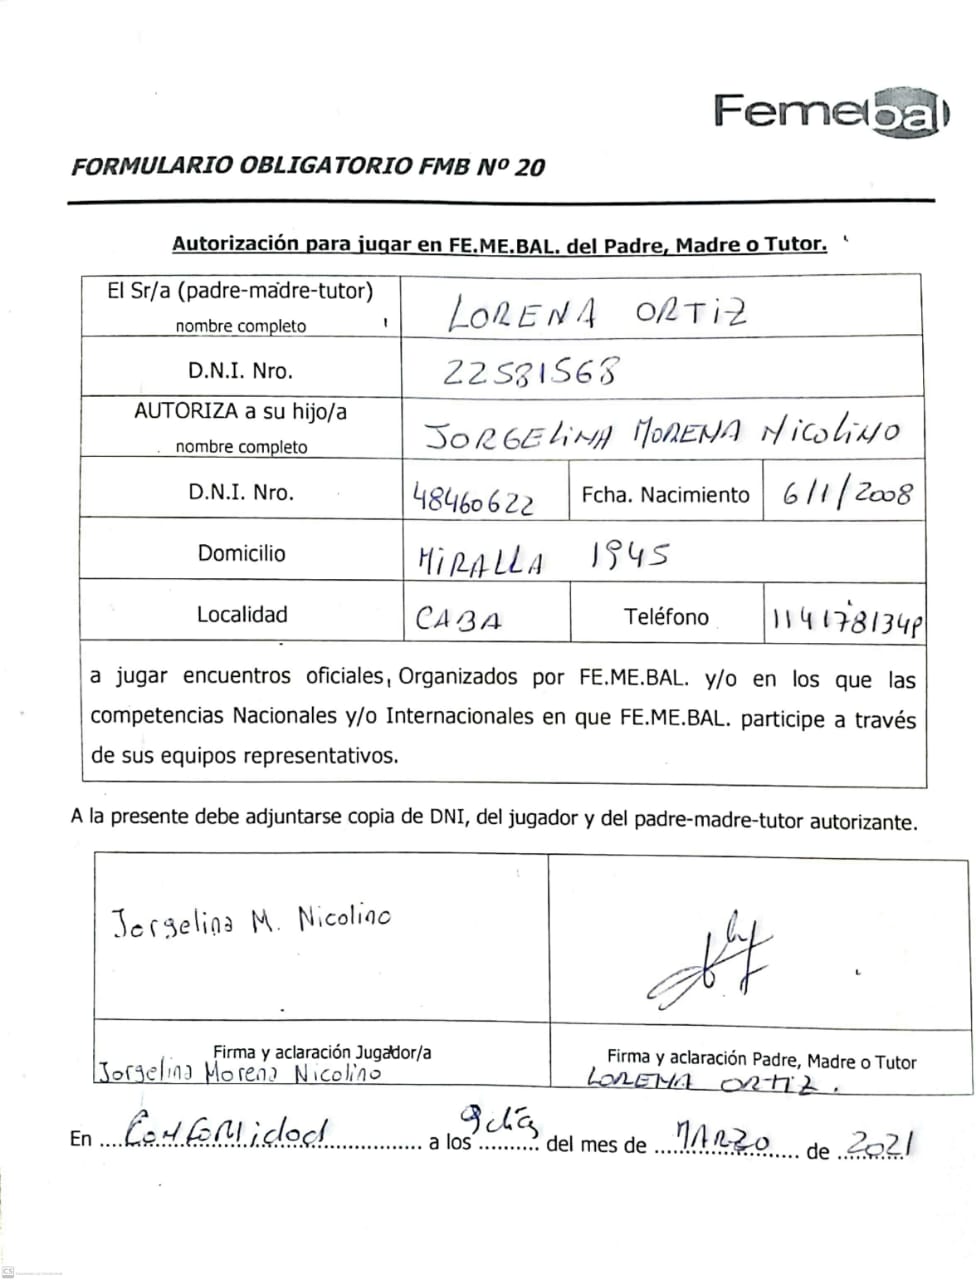 Femebal
FORMULARIO OBLIGATORIO FMB Nº 20
Autorización para jugar en FE.ME.BAL. del Padre, Madre o Tutor.
El Sr/a (padre-madre-tutor) nombre completo LORENA ORTiZ
D.N.I. Nro. 22581568
AUTORIZA a su hijo/a nombre completo JORGELiNA MORENA NicoliNO
D.N.I. Nro. 48460622 Fcha. Nacimiento 6/1/2008
Domicilio MiRALLA 1945
Localidad CABA Teléfono
a jugar encuentros oficiales, Organizados por FE.ME.BAL. y/o en los que las
competencias Nacionales y/o Internacionales en que FE.ME.BAL. participe a través
de sus equipos representativos.
A la presente debe adjuntarse copia de DNI, del jugador y del padre-madre-tutor autorizante.
Jorgelina M. Nicolino
Firma y aclaración Jugador/a
Jorgelina Morena Nicolino
Firma y aclaración Padre, Madre o Tutor
LORENA ORTIZ.
En ....Conformidad.... a los ..9 días.. del mes de ..MARZO.. de ..2021
CS